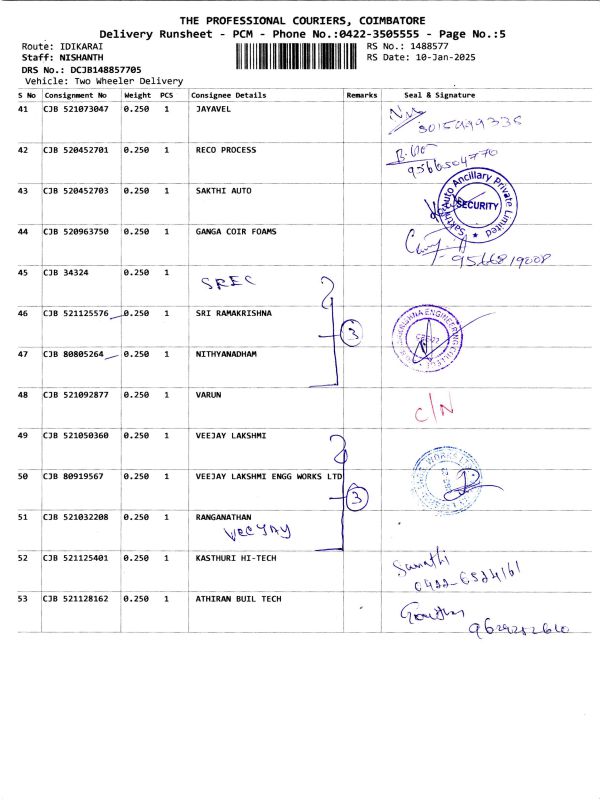 THE PROFESSIONAL COURIERS, COIMBATORE
Delivery Runsheet - PCM - Phone No.:0422-3505555 - Page No.:5
Route: IDIKARAI RS No.: 1488577
Staff: NISHANTH RS Date: 10-Jan-2025
DRS No.: DCJB148857705
Vehicle: Two Wheeler Delivery
S No Consignment No Weight PCS Consignee Details Remarks Seal & Signature
41 CJB 521073047 0.250 1 JAYAVEL
42 CJB 520452701 0.250 1 RECO PROCESS
9566504770
43 CJB 520452703 0.250 1 SAKTHI AUTO
Sakthi Auto Ancillary Private Limited
SECURITY
44 CJB 520963750 0.250 1 GANGA COIR FOAMS
9566819008
45 CJB 34324 0.250 1
SREC
46 CJB 521125576 0.250 1 SRI RAMAKRISHNA
3
47 CJB 80805264 0.250 1 NITHYANADHAM
48 CJB 521092877 0.250 1 VARUN
C/N
49 CJB 521050360 0.250 1 VEEJAY LAKSHMI
50 CJB 80919567 0.250 1 VEEJAY LAKSHMI ENGG WORKS LTD
3
51 CJB 521032208 0.250 1 RANGANATHAN
VEEJAY
52 CJB 521125401 0.250 1 KASTHURI HI-TECH
Sumathi
0422-6524161
53 CJB 521128162 0.250 1 ATHIRAN BUIL TECH
Gowtham